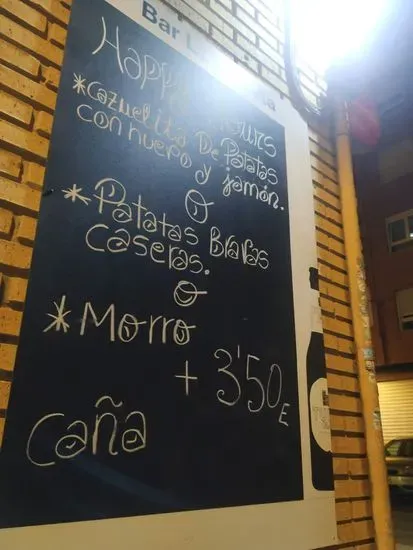 Bar
Happy Hours
*Cazuelita De Patatas
con huevo y jamón.
O
*Patatas Bravas
caseras.
O
*Morro
+ 3'50€
Caña